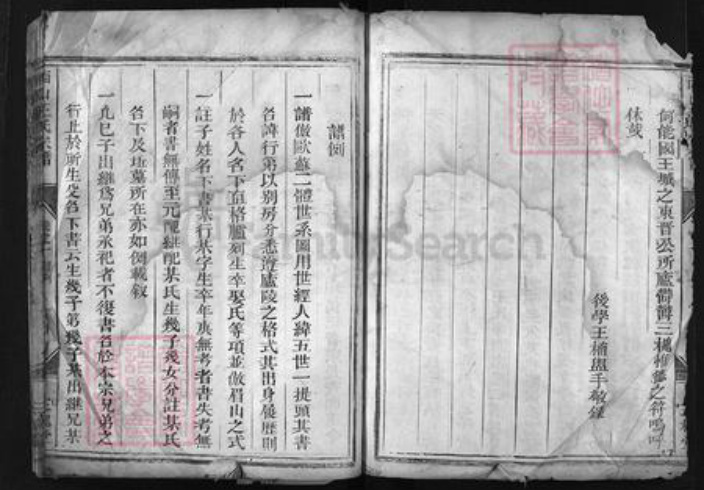 何能國王城之東晋公所廬鬱鬱三槐惟德之符嗚呼
休哉
後學王楠盥手敬錄
譜例
一譜倣歐蘇二體世系圖用世經人緯五世一提頭其書
名諱行第以別房分悉遵廬陵之格式其出身履歷則
於各人名下直格臚列生卒娶氏等項並倣眉山之式
一註子姓名下書某行某字生卒年庚無考者書失考無
嗣者書無傳至元配繼配某氏生幾子幾女分註某氏
名下及坵墓所在亦如例載叙
一凡已子出繼爲兄弟承祀者不復書名於本宗兄弟之
行止於所生父名下書云生幾子第幾子某出繼兄某
王氏宗譜